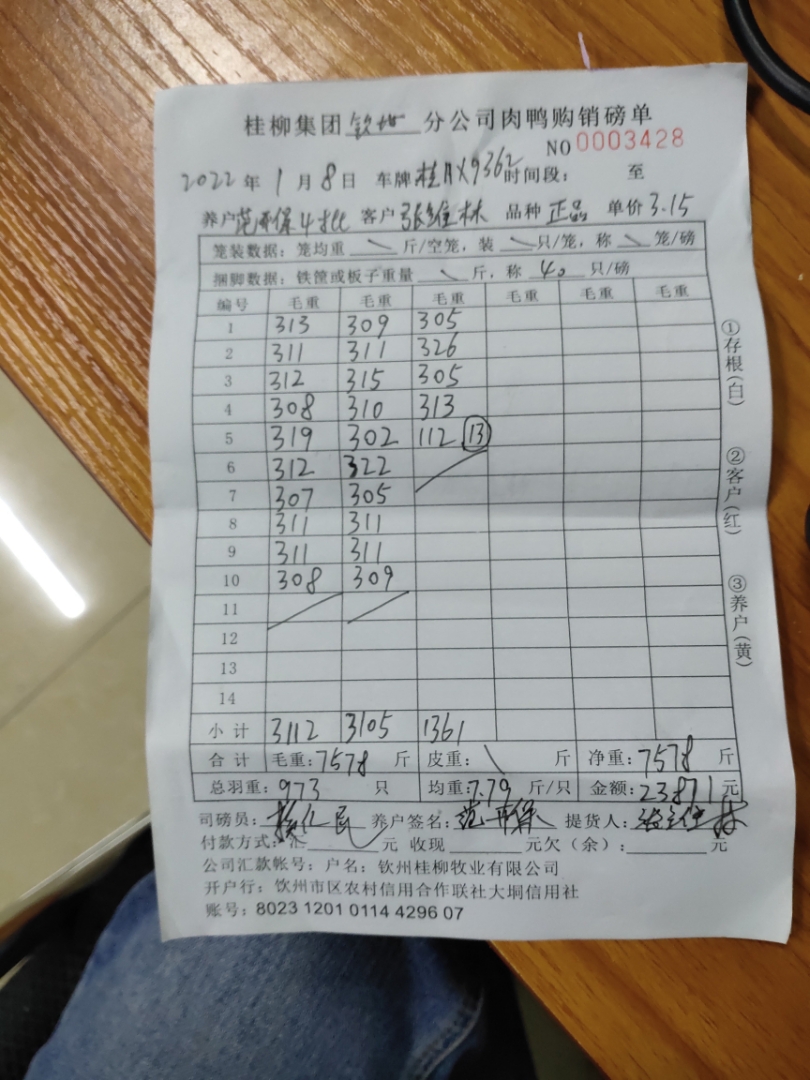 桂柳集团钦州分公司肉鸭购销磅单
NO 0003428
2022年1月8日 车牌桂AX9362时间段: 至
养户范开保4批 客户张维林 品种 正品 单价3.15
笼装数据: 笼均重 \ 斤/空笼, 装 \ 只/笼, 称 \ 笼/磅
捆脚数据: 铁筐或板子重量 \ 斤, 称 40 只/磅
编号 毛重 毛重 毛重 毛重 毛重 毛重
1 313 309 305
2 311 311 326
3 312 315 305
4 308 310 313
5 319 302 112 13
6 312 322
7 307 305
8 311 311
9 311 311
10 308 309
11
12
13
14
小计 3112 3105 1361
合计 毛重:7578 斤 皮重: \ 斤 净重:7578 斤
总羽重: 973 只 均重:7.79 斤/只 金额:23871元
司磅员: 养户签名:范开保 提货人:张维林
付款方式:汇 元 收现 元欠(余): 元
公司汇款帐号: 户名: 钦州桂柳牧业有限公司
开户行: 钦州市区农村信用合作联社大垌信用社
账号: 8023 1201 0114 4296 07
①存根(白)
②客户(红)
③养户(黄)